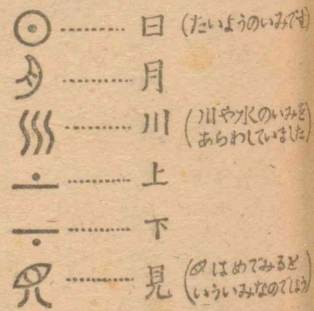 日 (たいようのいみです)
月
川 (川や水のいみを
あらわしていました)
上
下
見 (はめでみると
いういみなのでしょう)